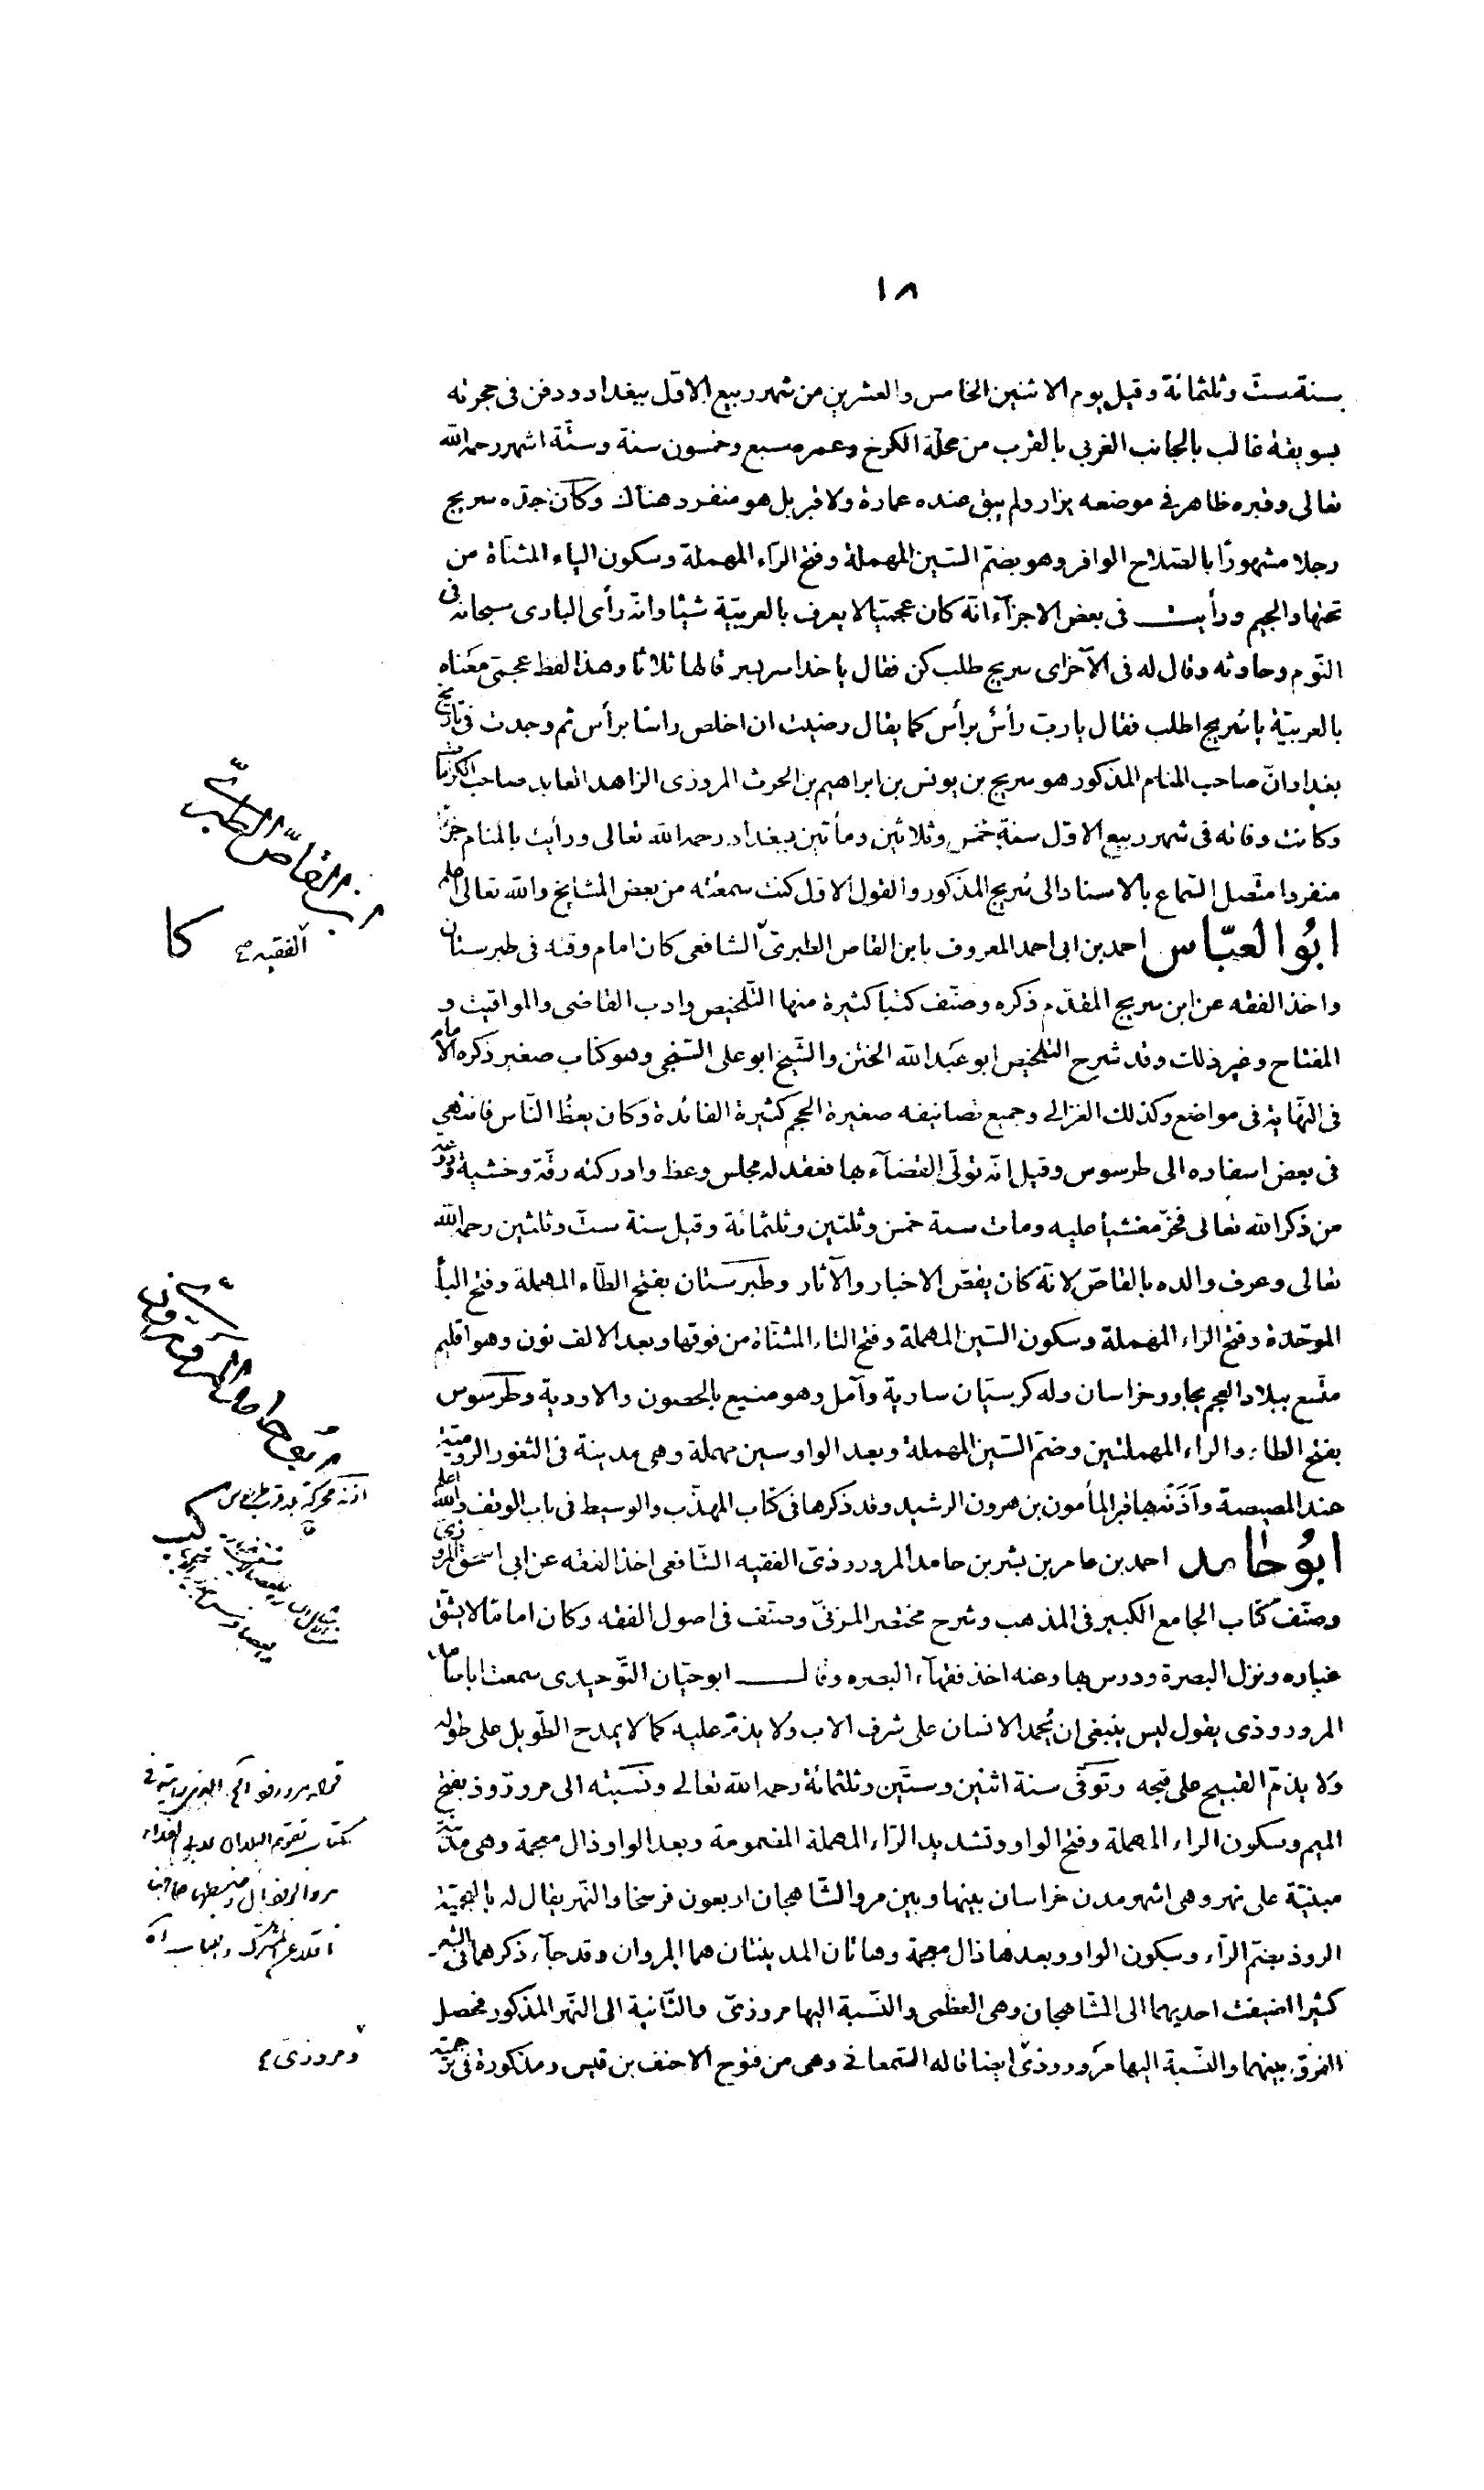 ١٨
سنة ست وثلثمائة وقيل يوم الاثنين الخامس والعشرين من شهر ربيع الاوّل ببغداد ودفن فى حجرته
بسويقة غالب بالجانب الغربي بالقرب من محلّة الكرخ وعمره سبع وخمسون سنة وستّة اشهر رحمه الله
تعالى وقبره ظاهر فى موضعه يزار ولم يبق عنده عمارة ولا قبر بل هو منفرد هناك وكان جدّه سريج
رجلا مشهورًا بالصّلاح الوافر وهو بضمّ السّين المهملة وفتح الرّاء المهملة وسكون الياء المثنّاة من
تحتها والجيم ورأيت فى بعض الاجزآء انّه كان عجميّا لا يعرف بالعربيّة شيئا وانّه رأى البارى سبحانه فى
النّوم وحادثه وقال له فى الآخر اى سريج طلب كن فقال يا خدا سر بسر قالها ثلاثا وهذا لفظ عجمىّ معناه
بالعربيّة يا سُريج اطلب فقال يا ربّ رأسٌ برأس كما يقال رضيت ان اخلص راسًا برأس ثم وجدت فى تاريخ
بغداد انّ صاحب المنام المذكور هو سريج بن يونس بن ابراهيم بن الحرث المروزى الزاهد العابد صاحب الكرامات
وكانت وفاته فى شهر ربيع الاوّل سنة خمس وثلاثين ومأتين ببغداد رحمه الله تعالى ورأيت بالمنام جزءًا
منفردا متّصل السّماع بالاسناد الى سُريج المذكور والقول الاوّل كنت سمعته من بعض المشايخ والله تعالى اعلم
ابُو العبّاس احمد بن ابى احمد المعروف بابن القاص الطبرىّ الشافعى كان امام وقته فى طبرستان
واخذ الفقه عن ابن سريج المقدّم ذكره وصنّف كتبا كثيرة منها التّلخيص وادب القاضى والمواقيت و
المفتاح وغير ذلك وقد شرح التّلخيص ابو عبد الله الختن والشّيخ ابو على السّنجى وهو كتاب صغير ذكره الامام
فى النّهاية فى مواضع وكذلك الغزالى وجميع تصانيفه صغيرة الحجم كثيرة الفائدة وكان يعظُ النّاس فانتهى
فى بعض اسفاره الى طرسوس وقيل انّه تولّى القضآء بها فعقد له مجلس وعظ وادركته رقّة وخشية وروعة
من ذكر الله تعالى فخرّ مغشيا عليه ومات سنة خمس وثلثين وثلثمائة وقيل سنة ستّ وثلثين رحمه الله
تعالى وعرف والده بالقاصّ لانّه كان يقصّ الاخبار والآثار وطبرستان بفتح الطّاء المهملة وفتح الباء
الموحّدة وفتح الراء المهملة وسكون السّين المهملة وفتح التاء المثنّاة من فوقها وبعد الالف نون وهو اقليم
متّسع ببلاد العجم يجاور خراسان وله كرسيّان سارية وآمل وهو منيع بالحصون والاودية وطرسوس
بفتح الطاء والراء المهملتين وضمّ السّين المهملة وبعد الواو سين مهملة وهى مدينة فى الثغور الروميّة
عند المصيصة وآذنه بها قبر المأمون بن هرون الرشيد وقد ذكرها فى كتاب المهذّب والوسيط فى باب الوقف والله اعلم
ابُو حامد احمد بن عامر بن بشر بن حامد المروروذىّ الفقيه الشّافعى اخذ الفقه عن ابى اسحق المروزى
وصنّف كتاب الجامع الكبير فى المذهب وشرح مختصر المزنىّ وصنّف فى اصول الفقه وكان اماما لا يشقّ
غباره ونزل البصرة ودرس بها وعنه اخذ فقهآء البصره وقال ابو حيّان التّوحيدى سمعت ابا حامد
المروروذى يقول ليس ينبغى ان يُحمد الانسان على شرف الاب ولا يذمّ عليه كما لا يمدح الطّويل على طوله
ولا يذمّ القبيح على قبحه وتوفّى سنة اثنين وستّين وثلثمائة رحمه الله تعالى ونسبته الى مروروذ بفتح
الميم وسكون الراء المهملة وفتح الواو وتشديد الرّاء المهملة المضمومة وبعد الواو ذال معجمة وهى مدينة
مبنيّة على نهر وهى اشهر مدن خراسان بينها وبين مرو الشّاهجان اربعون فرسخا والنّهر يقال له بالعجميّة
الروذ بضمّ الرّآء وسكون الواو وبعدها ذال معجمة وهاتان المدينتان هما المروان وقد جآء ذكرهما فى الشعر
كثيرا اضيفت احديهما الى الشّاهجان وهى العظمى والنّسبة اليها مروزىّ والثّانية الى النّهر المذكور فحصل
الفرق بينهما والنّسبة اليها مروروذىّ ايضا قاله السّمعانى وهى من فتوح الاحنف بن قيس ومذكورة فى ترجمته
ابن القاصّ الطبرىّ
الفقيه
كا
ابو حامد المروروذى
كب
ومروزىّ